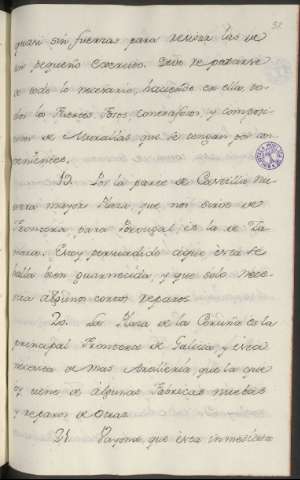 quasi sin fuerzas para resistir las de
un pequeño exercito. Deve repararse
de todo lo necesario, haciendo en ella to-
dos los Fuertes, Fosos, contrafosos y composi-
cion de Murallas que se tengan por con-
venientes.
19. Por la parte de Castilla
mayor Plaza, que nos sirve de
Frontera para Portugal es la de
Estoy persuadido a que esta se
halla bien guarnecida, y que solo nece-
sita algunos cortos reparos.
20. La Plaza de la Coruña es la
principal Frontera de Galicia y esta
necesita de mas Artilleria que la que
oy tiene de algunas Fabricas nuebas
y reparos de otras.
21. Bayona, que esta inmediata